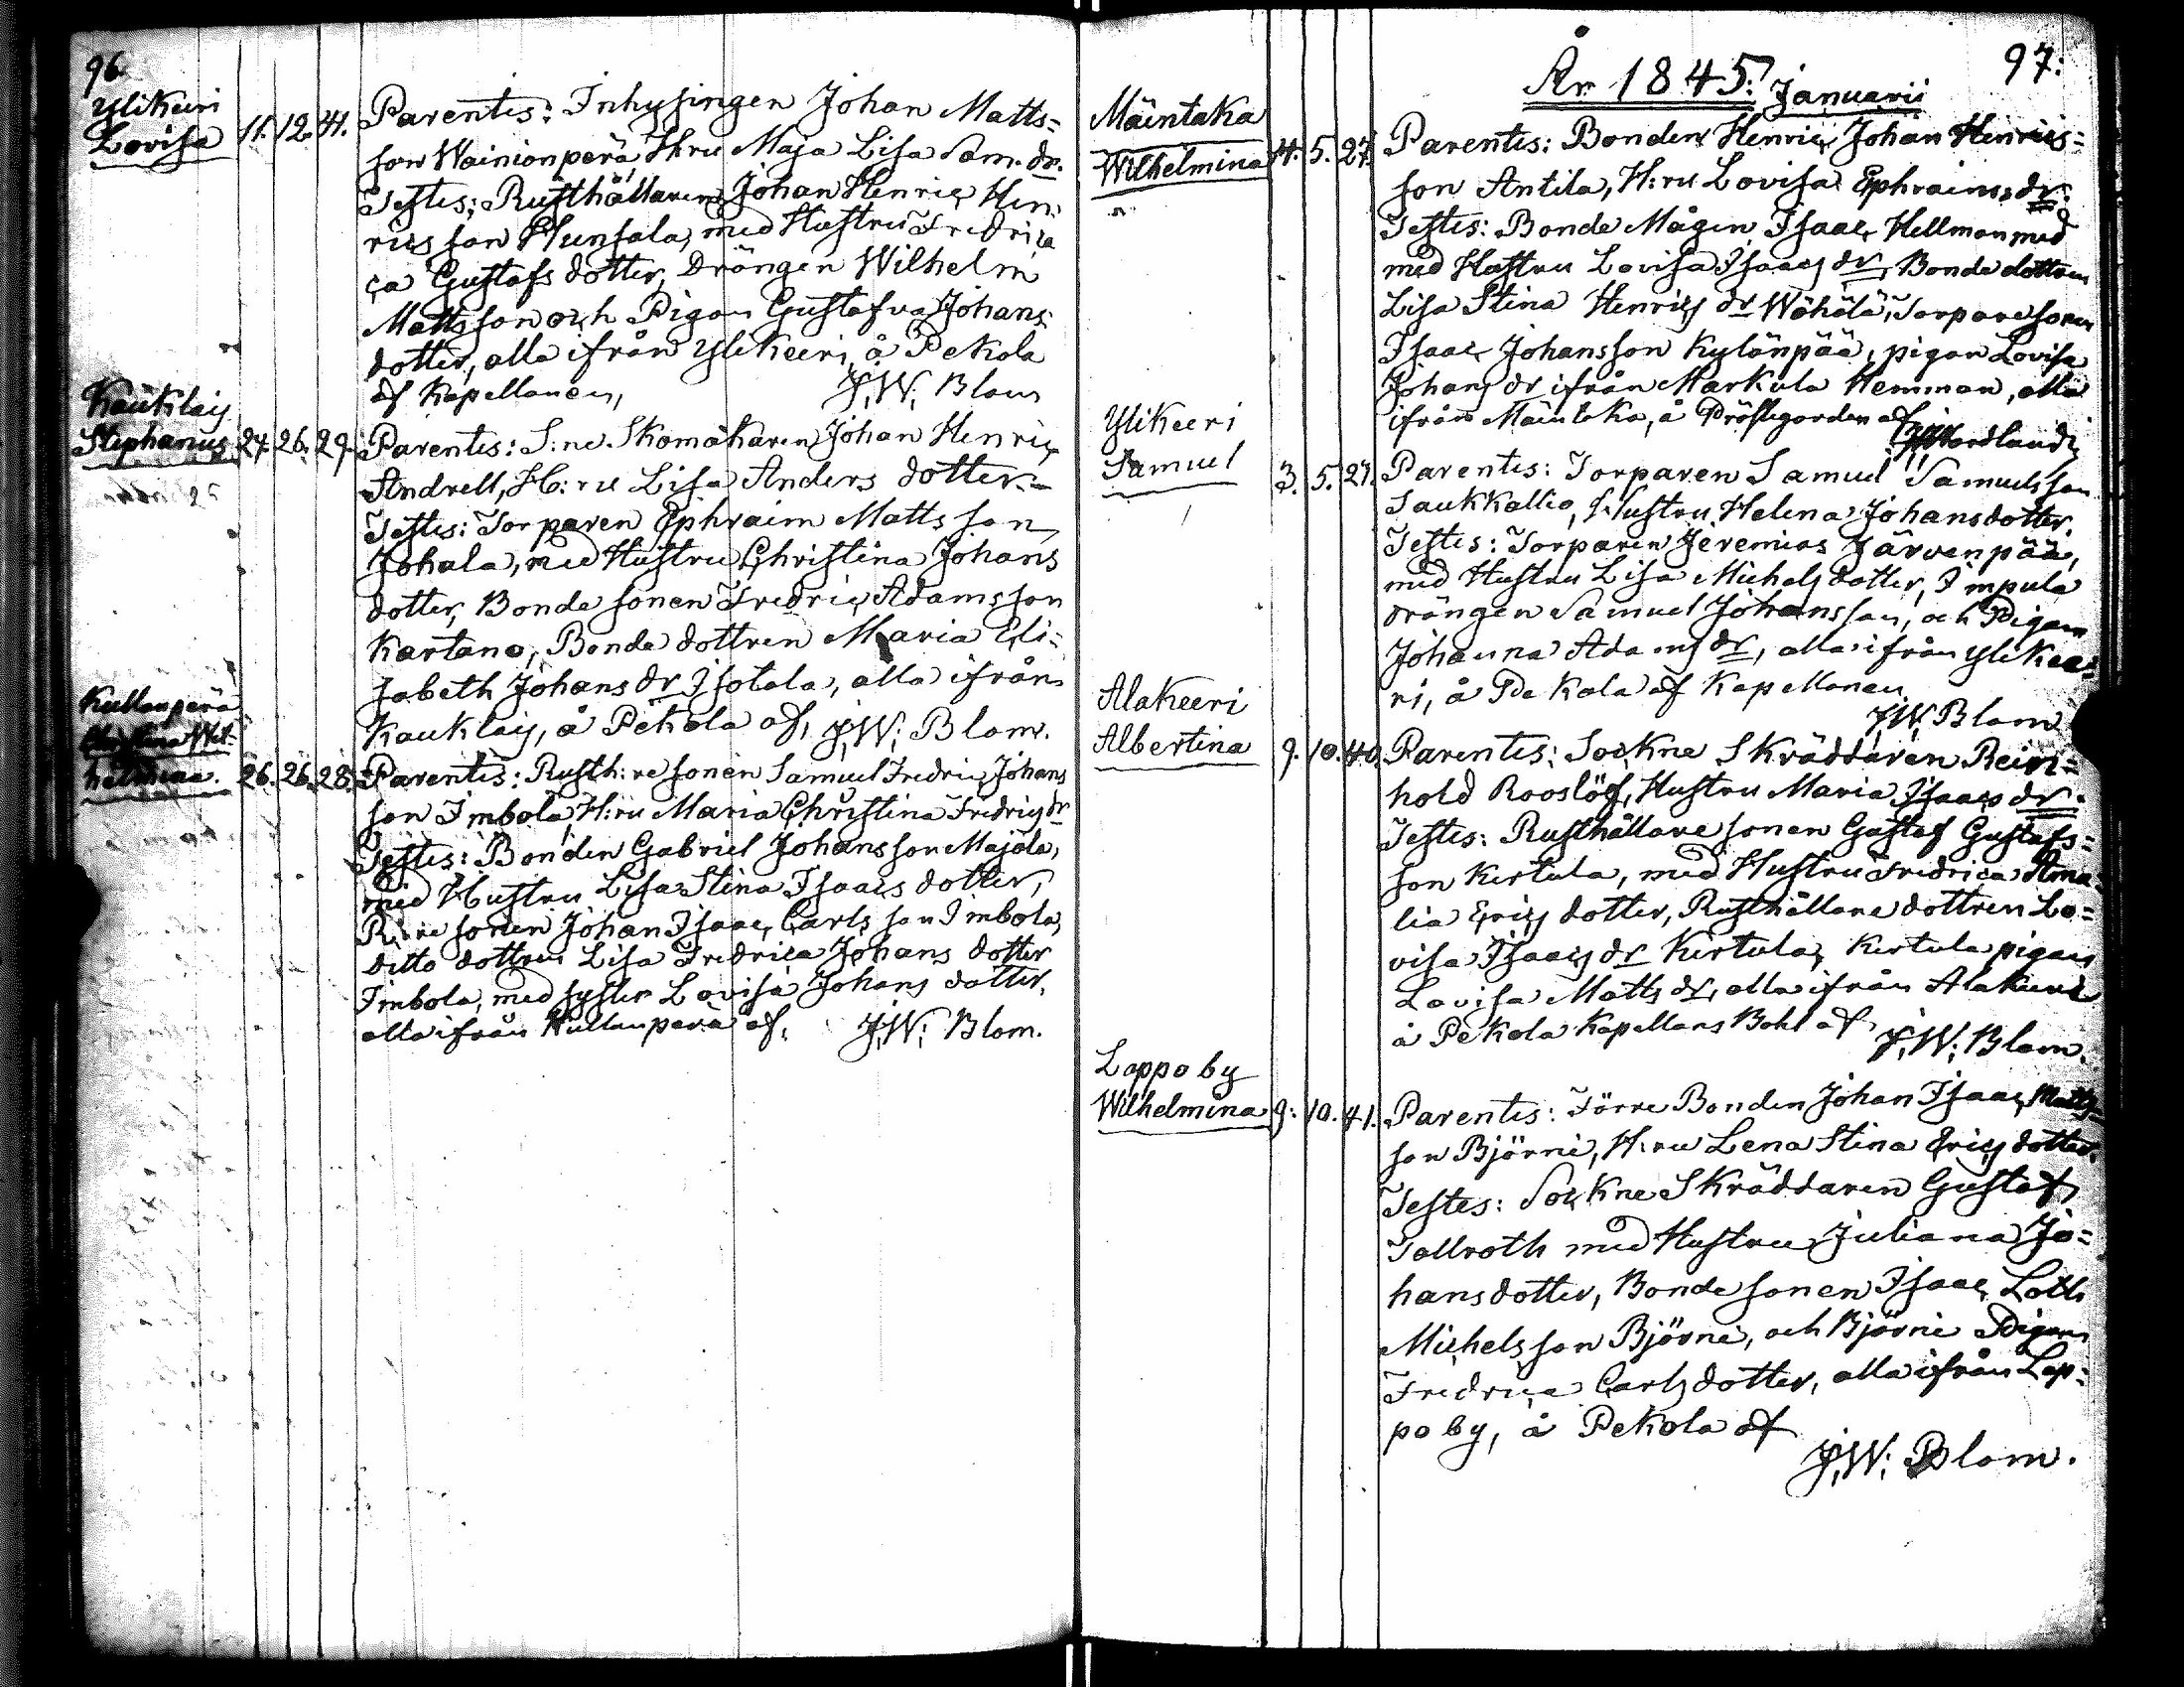 96.
Ylikeeri
Lovisa 11. 12. 41.
Parentes: Inhysingen Johan Matts=
son Wainionperä, H:ru Maja Lisa Sam. dr.
Testes: Rusthållaren Johan Henric Hen
rics son Hunsala, med Hustru Fredrica
ca Gustafs dotter, Drängen Wilhelm
Mattsson och Pigan Gustafva Johans
dotter, alla ifrån Ylikeeri, å Pekola
af Kapellanen, J,W; Blom
Kauklais
Stephanus 24. 26. 29.
Parentes: S:ne Skomakaren Johan Henric
Andrell, H:ru Lisa Anders dotter.=
Testes: Torparen Ephraim Matts son
Johala, med Hustru Christina Johans
dotter, Bonde sonen Fredric Adamsson
Kartano, Bonde dottren Maria Eli=
sabeth Johans dr Isotala, alla ifrån
Kauklais, å Pekola af, J,W; Blom.
Kullanperä
Christina Wil=
helmina. 26. 26. 28.
Parentes: Rusth:re sonen Samuel Fredric Johans
son Imbola, H:ru Maria Christina Fredrics dr
Testes: Bonden Gabriel Johansson Majola,
med Hustru Lisa Stina Isaacs dotter,
R:re sonen Johan Isaac Carls son Imbola,
ditto dottren Lisa Fredrica Johans dotter
Imbola, med syster Lovisa Johans dotter,
alla ifrån Kullanperä af, J,W; Blom.
97.
År 1845: Januarii
Mäintaka
Wilhelmina 4. 5. 27.
Parentes: Bonden Henric Johan Henrics=
son Antila, H:ru Lovisa Ephraims dr.
Testes: Bonde Mågen Isaac Hellman med
med Hustru Lovisa Isaacs dr, Bonde dottren
Lisa Stina Henrics dr Wähälä, Torparesonen
Isaac Johansson Kylänpää, pigan Lovisa
Johans dr ifrån Markula Hemman, alla
ifrån Mäintaka, å Pröstegorden af
Nordlund
Ylikeeri
Samuel 3. 5. 27.
Parentes: Torparen Samuel Samuelsson
Saukkallio, Hustru Helena Johansdotter,
Testes: Torparen Jeremias Järvenpää,
med Hustru Lisa Michels dotter, Impula
drängen Samuel Johansson, och Pigan
Johanna Adams dr, alla ifrån Ylikee=
ri, å Pekola af Kapellanen
J,W; Blom
Alakeeri
Albertina 9. 10. 40.
Parentes: Sockne Skräddaren Rein=
hold Rooslöf, Hustru Maria Isaacs dr.
Testes: Rusthållare sonen Gustaf Gustafs=
son Kertula, med Hustru Fredrica Ama=
lia Erics dotter, Rusthållare dottren Lo=
visa Isaacs dr Kertula, Kertula pigan
Lovisa Matts dr, alla ifrån Alakeeri
å Pekola Kapellans Bohl af J,W; Blom.
Lappo by
Wilhelmina 9. 10. 41.
Parentes: Förre Bonden Johan Isaac Matts=
son Björni, H:ru Lena Stina Erics dotter.
Testes: Sockne Skräddaren Gustaf
Tallroth med Hustru Juliana Jo=
hansdotter, Bonde sonen Isaac Loth
Michelsson Björni, och Björni Pigan
Fredrica Carlsdotter, alla ifrån Lap=
po by, å Pekola af
J,W; Blom.